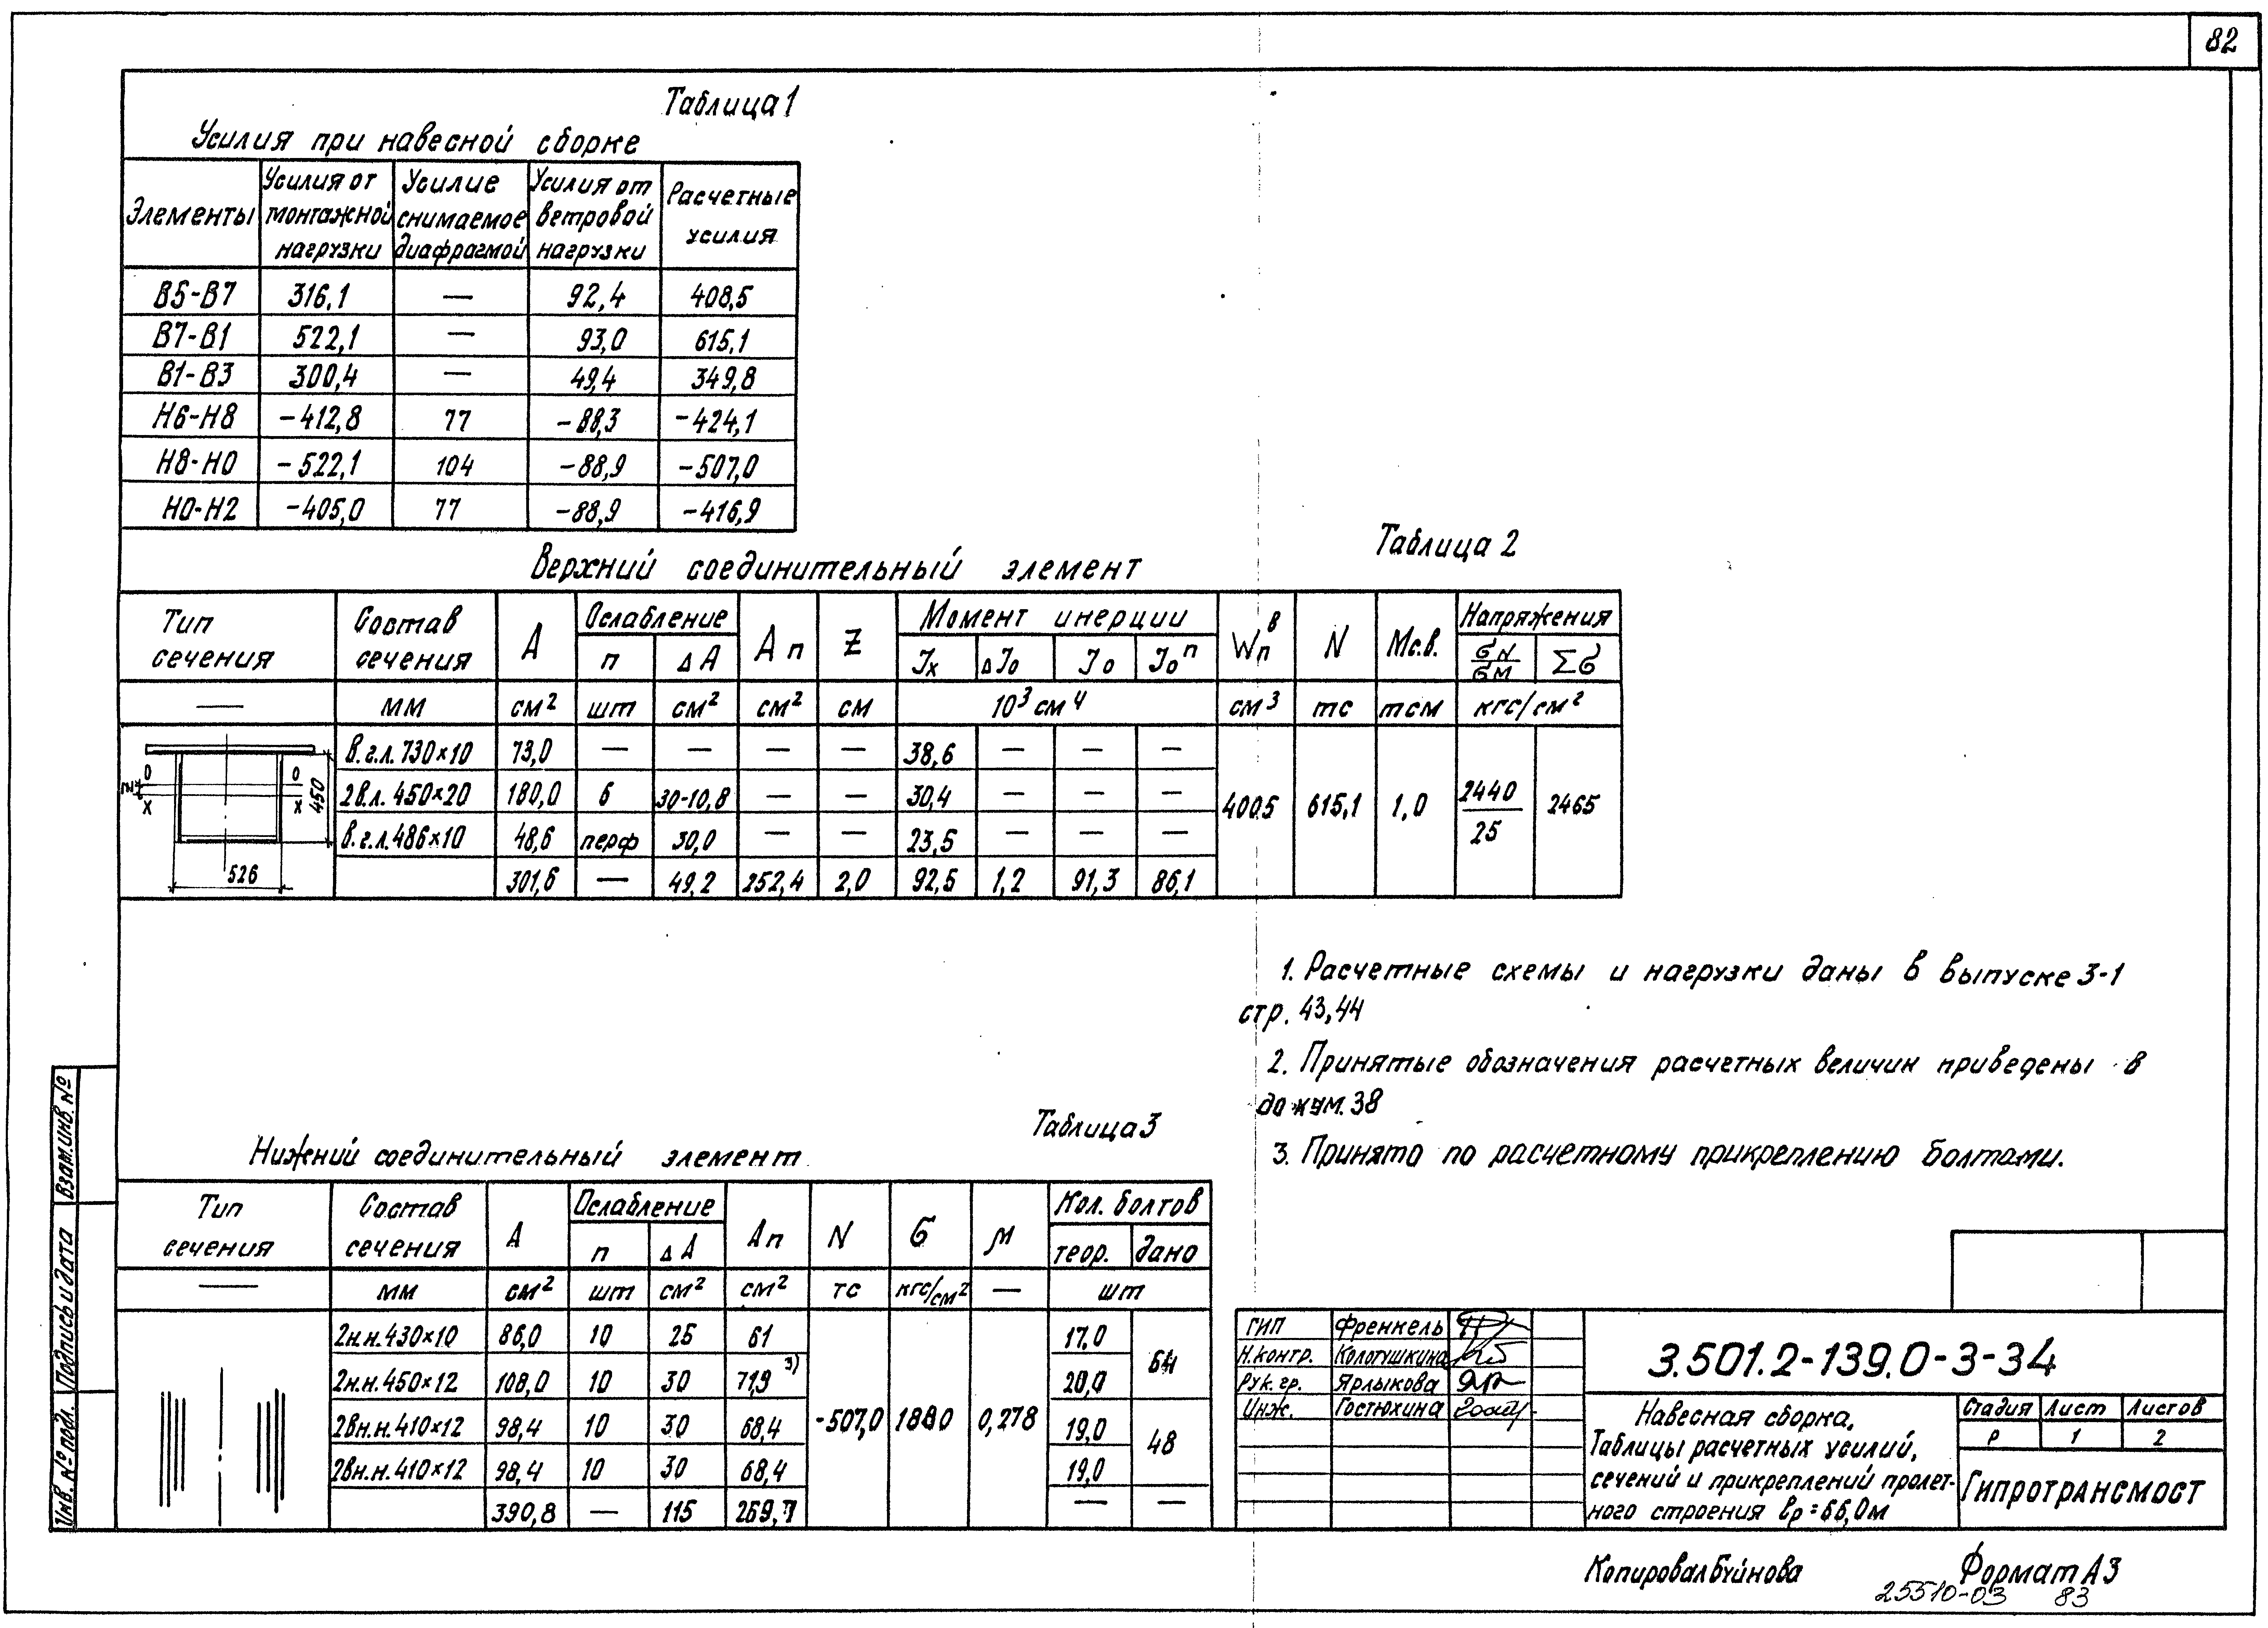 82
Таблица 1
Усилия при навесной сборке
Элементы | Усилия от монтажной нагрузки | Усилие снимаемое диафрагмой | Усилия от ветровой нагрузки | Расчетные усилия
В5-В7 | 316,1 | — | 92,4 | 408,5
В7-В1 | 522,1 | — | 93,0 | 615,1
В1-В3 | 300,4 | — | 49,4 | 349,8
Н6-Н8 | -412,8 | 77 | -88,3 | -424,1
Н8-Н0 | -522,1 | 104 | -88,9 | -507,0
Н0-Н2 | -405,0 | 77 | -88,9 | -416,9
Таблица 2
Верхний соединительный элемент
Тип сечения | Состав сечения | А | Ослабление | Ап | Z | Момент инерции | Wп в | N | Мс.в. | Напряжения
п | ΔА | Jx | ΔJо | Jо | Jоп | σN/σМ | Σσ
— | мм | см² | шт | см² | см² | см | 10³см⁴ | см³ | тс | тсм | кгс/см²
в.г.л.730×10 | 73,0 | — | — | — | — | 38,6 | — | — | —
2в.л.450×20 | 180,0 | 6 | 30-10,8 | — | — | 30,4 | — | — | —
в.г.л.486×10 | 48,6 | перф | 30,0 | — | — | 23,5 | — | — | —
301,6 | — | 49,2 | 252,4 | 2,0 | 92,5 | 1,2 | 91,3 | 86,1
4005 | 615,1 | 1,0 | 2440/25 | 2465
О О
Z
Х Х
450
526
1. Расчетные схемы и нагрузки даны в выпуске 3-1
стр. 43,44
2. Принятые обозначения расчетных величин приведены в
докум. 38
3. Принято по расчетному прикреплению болтами.
Таблица 3
Нижний соединительный элемент
Тип сечения | Состав сечения | А | Ослабление | Ап | N | σ | μ | Кол. болтов
п | ΔА | теор. | дано
— | мм | см² | шт | см² | см² | тс | кгс/см² | — | шт
2н.н.430×10 | 86,0 | 10 | 25 | 61 | 17,0
2н.н.450×12 | 108,0 | 10 | 30 | 71,9 3) | 20,0
64
2вн.н.410×12 | 98,4 | 10 | 30 | 68,4 | 19,0
2вн.н.410×12 | 98,4 | 10 | 30 | 68,4 | 19,0
48
390,8 | — | 115 | 269,7 | — | —
-507,0 | 1880 | 0,278
Взам.инв.№
Подпись и дата
Инв.№ подл.
ГИП Френкель
Н.контр. Кологушкина
Рук.гр. Ярлыкова
Инж. Гостюхина
3.501.2-139.0-3-34
Навесная сборка.
Таблицы расчетных усилий,
сечений и прикреплений пролет-
ного строения lр=66,0м
Стадия | Лист | Листов
Р | 1 | 2
Гипротрансмост
Копировал Буйнова
Формат А3
25510-03 83